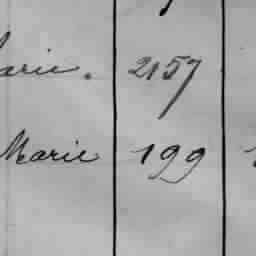 arie. 2157
Marie 199